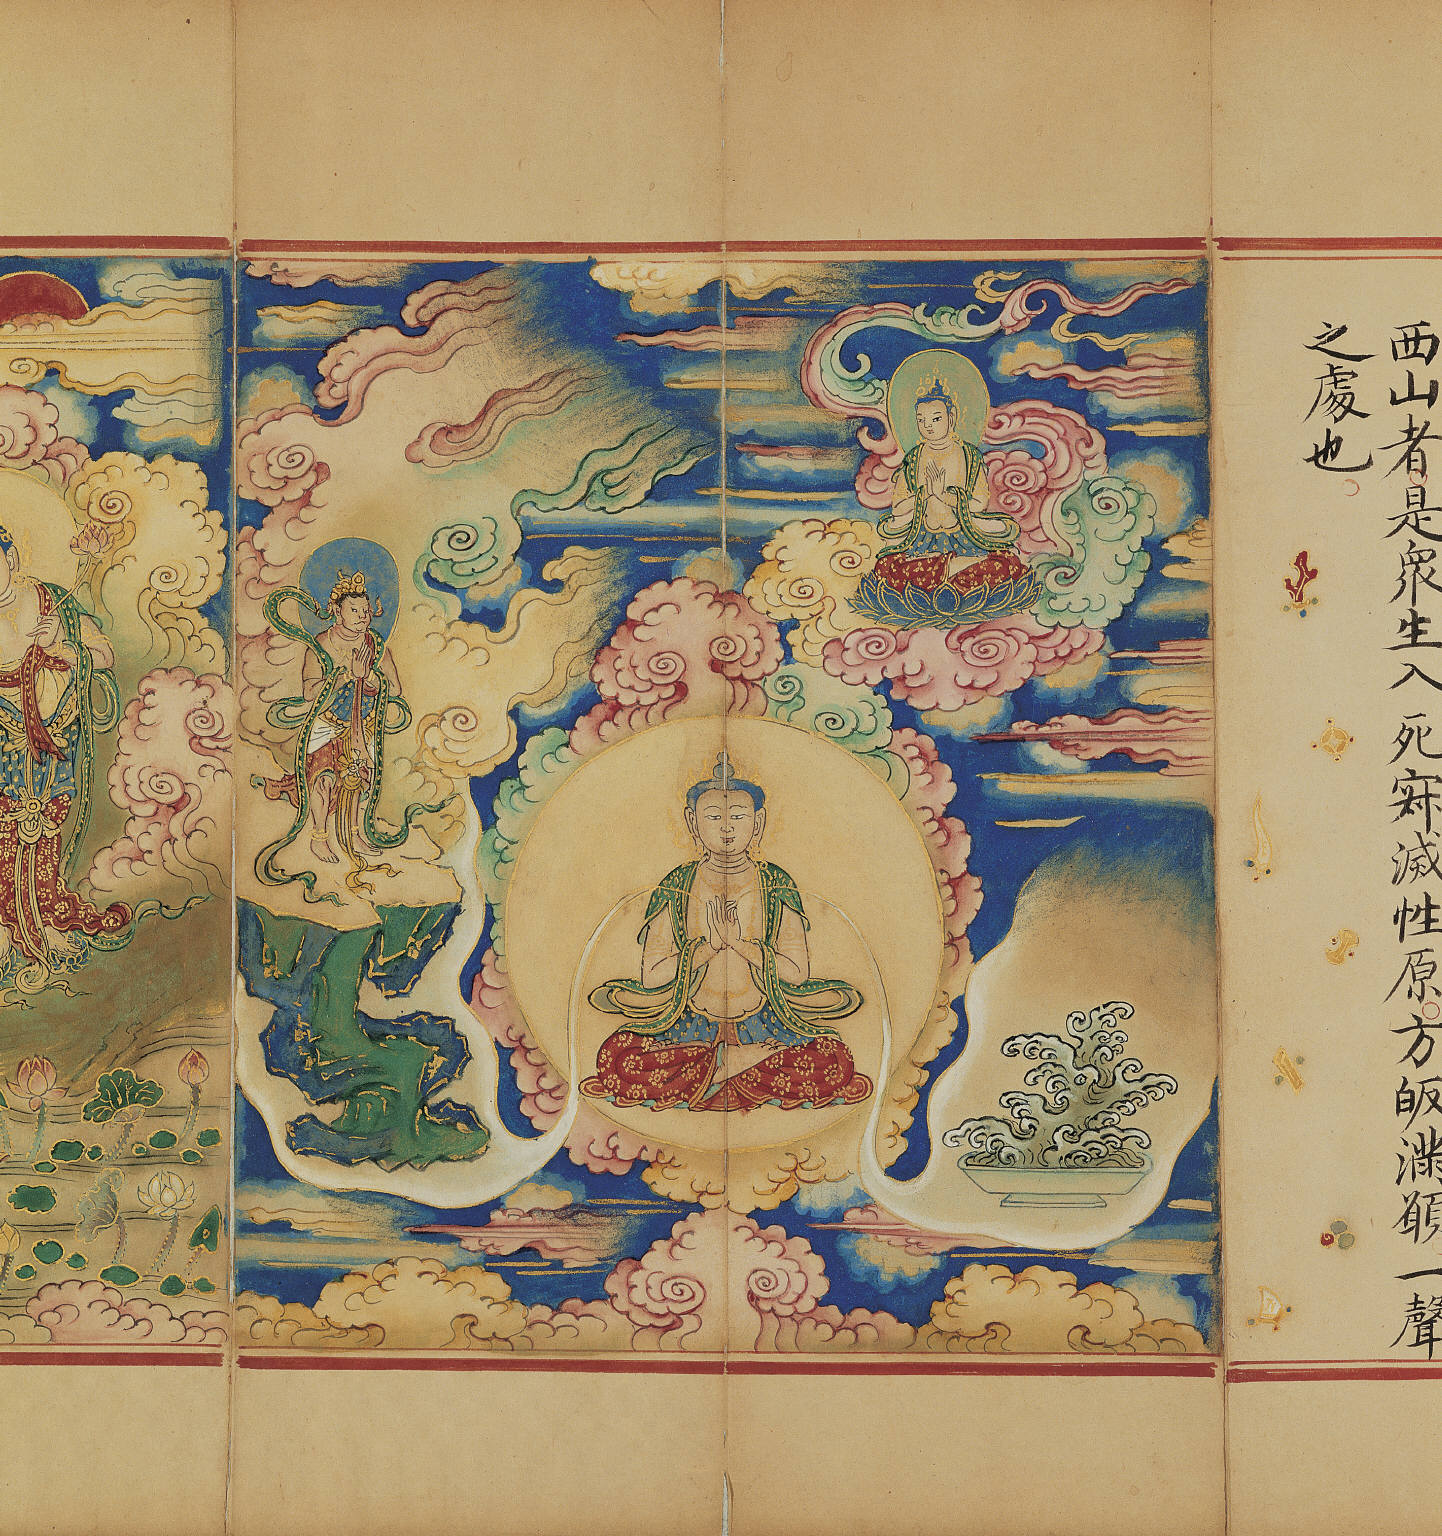 西山者是衆生入死寂滅性原方皈满領一聲
之處也